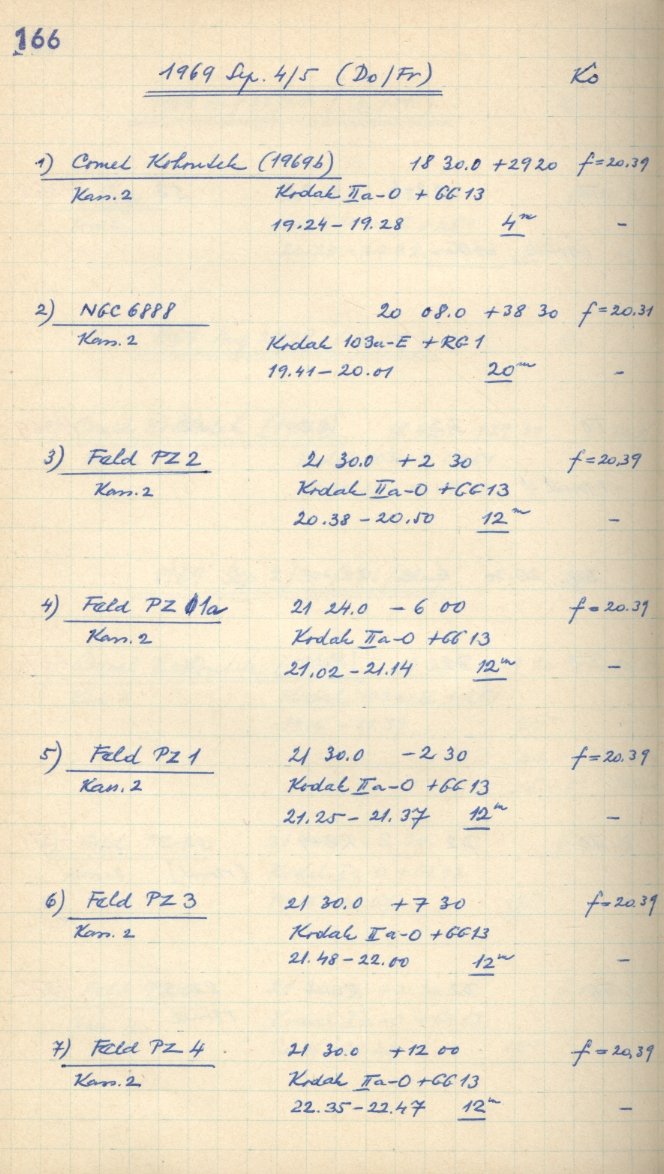 166
1969 Sep. 4/5 (Do/Fr) Ko
1) Comet Kohoutek (1969b) 18 30.0 +29 20 f=20.39
Kass. 2 Kodak IIa-O + GG 13
19.24 – 19.28 4m –
2) NGC 6888 20 08.0 +38 30 f=20.31
Kass. 2 Kodak 103a-E + RG 1
19.41 – 20.01 20m –
3) Feld PZ 2 21 30.0 +2 30 f=20.39
Kass. 2 Kodak IIa-O + GG 13
20.38 – 20.50 12m –
4) Feld PZ 1a 21 24.0 –6 00 f=20.39
Kass. 2 Kodak IIa-O + GG 13
21.02 – 21.14 12m –
5) Feld PZ 1 21 30.0 –2 30 f=20.39
Kass. 2 Kodak IIa-O + GG 13
21.25 – 21.37 12m –
6) Feld PZ 3 21 30.0 +7 30 f=20.39
Kass. 2 Kodak IIa-O + GG 13
21.48 – 22.00 12m –
7) Feld PZ 4 21 30.0 +12 00 f=20.39
Kass. 2 Kodak IIa-O + GG 13
22.35 – 22.47 12m –